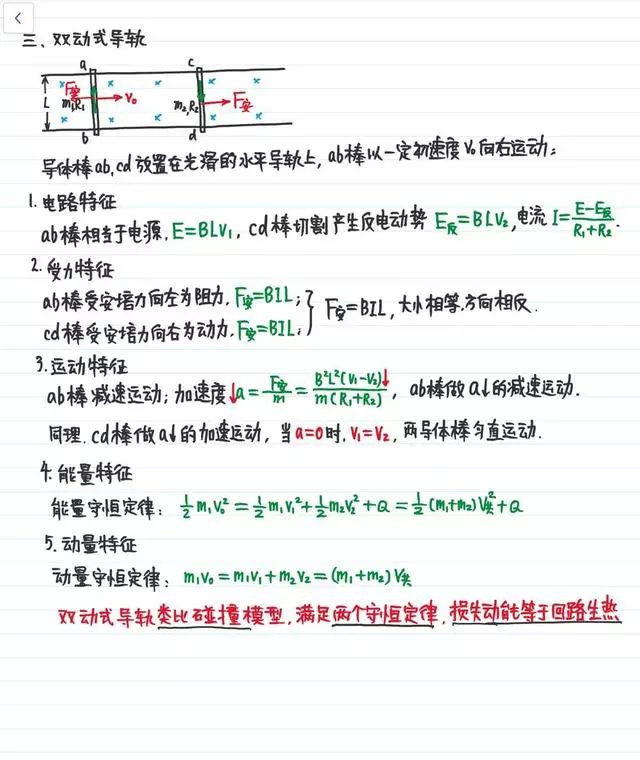 三、双动式导轨
a c
F安 v₀ F安
L m₁R₁ m₂,R₂
b d
导体棒ab,cd放置在光滑的水平导轨上，ab棒以一定初速度V₀向右运动；
1. 电路特征
ab棒相当于电源，E=BLV₁，cd棒切割产生反电动势 E反=BLV₂，电流 I=(E-E反)/(R₁+R₂).
2. 受力特征
ab棒受安培力向左为阻力，F安=BIL；
F安=BIL，大小相等.方向相反.
cd棒受安培力向右为动力，F安=BIL；
3. 运动特征
ab棒减速运动；加速度↓a=F安/m=B²L²(V₁-V₂)↓/m(R₁+R₂)，ab棒做a↓的减速运动.
同理.cd棒做a↓的加速运动，当a=0时，V₁=V₂，两导体棒匀直运动.
4. 能量特征
能量守恒定律：½m₁V₀²=½m₁V₁²+½m₂V₂²+Q=½(m₁+m₂)V共²+Q
5. 动量特征
动量守恒定律：m₁v₀=m₁v₁+m₂v₂=(m₁+m₂)V共
双动式导轨类比碰撞模型，满足两个守恒定律，损失动能等于回路生热